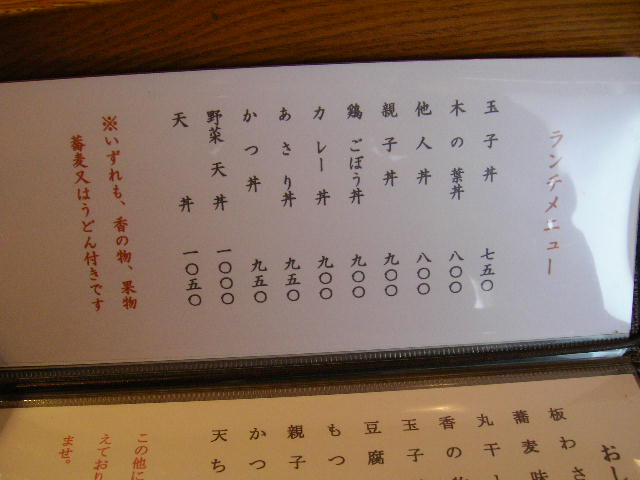 ランチメニュー
玉子丼 七五〇
木の葉丼 八〇〇
他人丼 八〇〇
親子丼 九〇〇
鶏ごぼう丼 九〇〇
カレー丼 九〇〇
あさり丼 九五〇
かつ丼 九五〇
野菜天丼 一〇〇〇
天丼 一〇五〇
※いずれも、香の物、果物
蕎麦又はうどん付きです
おし
板わさ
蕎麦味
丸干し
香の物
玉子
豆腐
もつ
親子
かつ
天ち
この他に
えており
ませ。